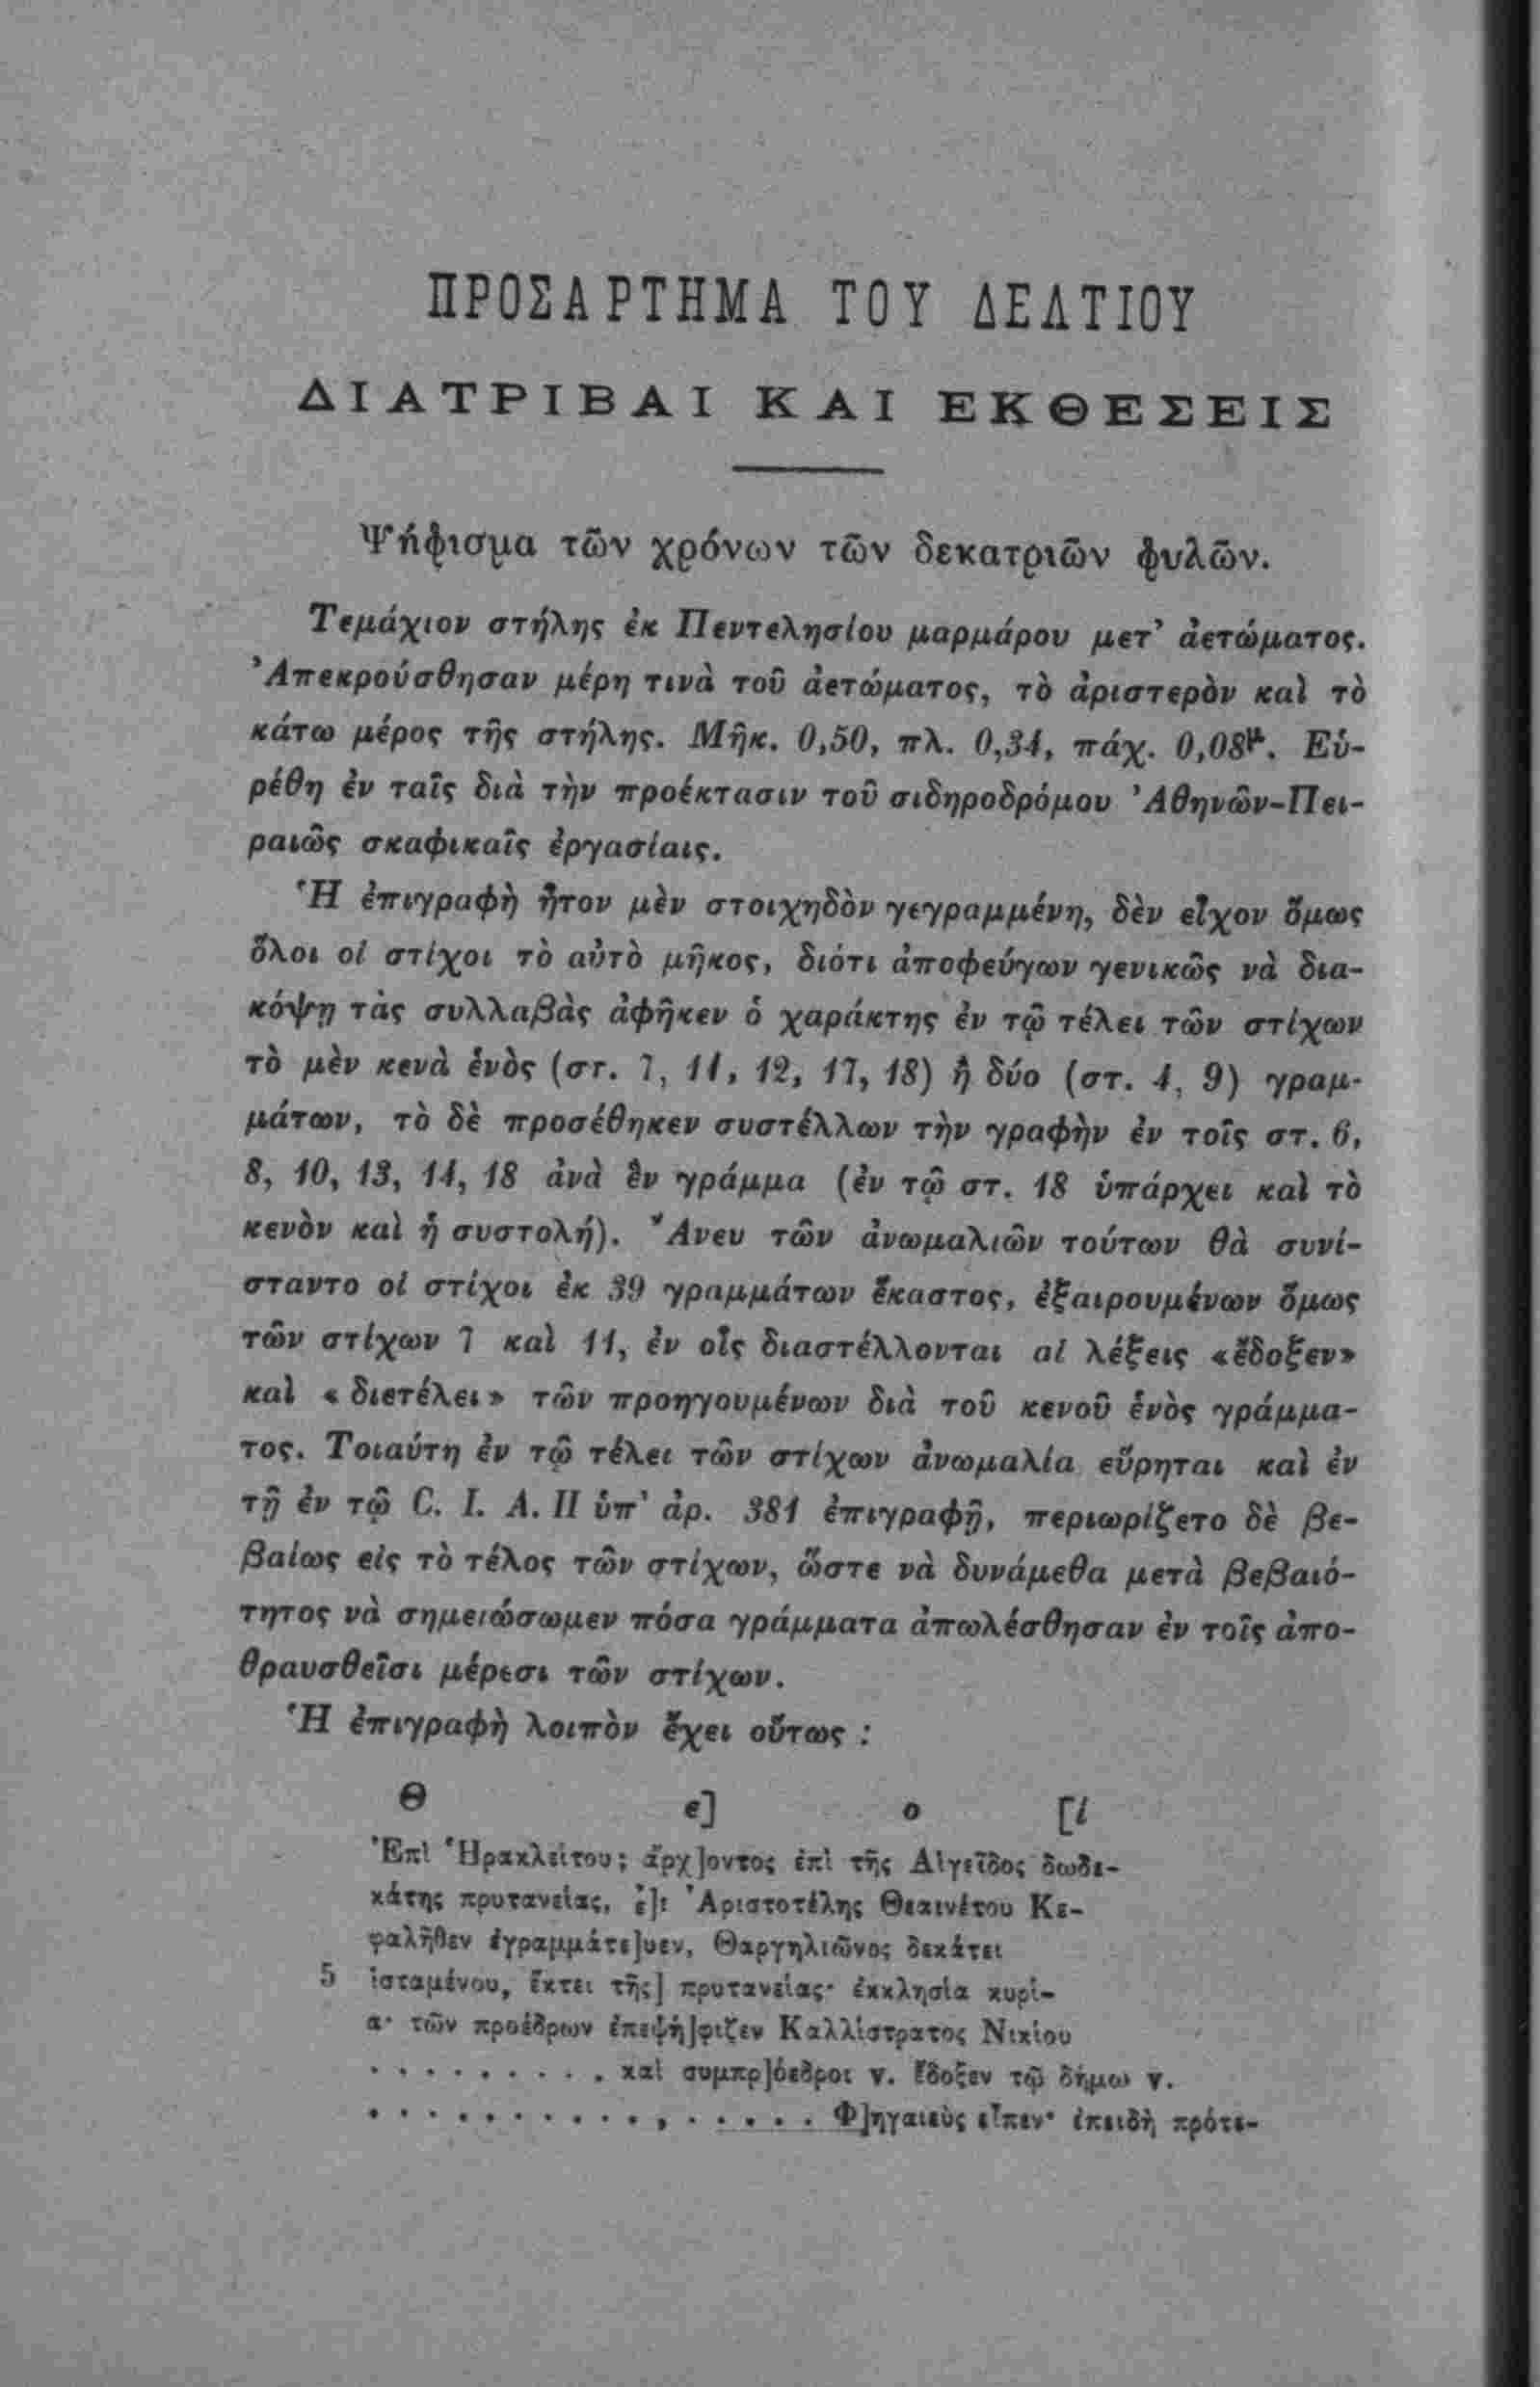 ΠΡΟΣΑΡΤΗΜΑ ΤΟΥ ΔΕΛΤΙΟΥ
ΔΙΑΤΡΙΒΑΙ ΚΑΙ ΕΚΘΕΣΕΙΣ
Ψήφισμα τῶν χρόνων τῶν δεκατριῶν φυλῶν.
Τεμάχιον στήλης ἐκ Πεντελησίου μαρμάρου μετ’ ἀετώματος.
Ἀπεκρούσθησαν μέρη τινὰ τοῦ ἀετώματος, τὸ ἀριστερὸν καὶ τὸ
κάτω μέρος τῆς στήλης. Μῆκ. 0,50, πλ. 0,34, πάχ. 0,08μ. Εὑ-
ρέθη ἐν ταῖς διὰ τὴν προέκτασιν τοῦ σιδηροδρόμου Ἀθηνῶν-Πει-
ραιῶς σκαφικαῖς ἐργασίαις.
Ἡ ἐπιγραφὴ ἦτον μὲν στοιχηδὸν γεγραμμένη, δὲν εἶχον ὅμως
ὅλοι οἱ στίχοι τὸ αὐτὸ μῆκος, διότι ἀποφεύγων γενικῶς νὰ δια-
κόψῃ τὰς συλλαβὰς ἀφῆκεν ὁ χαράκτης ἐν τῷ τέλει τῶν στίχων
τὸ μὲν κενὰ ἑνὸς (στ. 7, 11, 12, 17, 18) ἢ δύο (στ. 4, 9) γραμ-
μάτων, τὸ δὲ προσέθηκεν συστέλλων τὴν γραφὴν ἐν τοῖς στ. 6,
8, 10, 13, 14, 18 ἀνὰ ἓν γράμμα (ἐν τῷ στ. 18 ὑπάρχει καὶ τὸ
κενὸν καὶ ἡ συστολή). Ἄνευ τῶν ἀνωμαλιῶν τούτων θὰ συνί-
σταντο οἱ στίχοι ἐκ 39 γραμμάτων ἕκαστος, ἐξαιρουμένων ὅμως
τῶν στίχων 7 καὶ 11, ἐν οἷς διαστέλλονται αἱ λέξεις «ἔδοξεν»
καὶ «διετέλει» τῶν προηγουμένων διὰ τοῦ κενοῦ ἑνὸς γράμμα-
τος. Τοιαύτη ἐν τῷ τέλει τῶν στίχων ἀνωμαλία εὕρηται καὶ ἐν
τῇ ἐν τῷ C. I. A. II ὑπ’ ἀρ. 381 ἐπιγραφῇ, περιωρίζετο δὲ βε-
βαίως εἰς τὸ τέλος τῶν στίχων, ὥστε νὰ δυνάμεθα μετὰ βεβαιό-
τητος νὰ σημειώσωμεν πόσα γράμματα ἀπωλέσθησαν ἐν τοῖς ἀπο-
θραυσθεῖσι μέρεσι τῶν στίχων.
Ἡ ἐπιγραφὴ λοιπὸν ἔχει οὕτως :
Θ ε] ο [ί
Ἐπὶ Ἡρακλείτου; ἄρχ]οντος ἐπὶ τῆς Αἰγεῖδος δωδε-
κάτης πρυτανείας, ἧ]ι Ἀριστοτέλης Θεαινέτου Κε-
φαλῆθεν ἐγραμμάτε]υεν, Θαργηλιῶνος δεκάτει
5 ἱσταμένου, ἕκτει τῆς] πρυτανείας· ἐκκλησία κυρί-
α· τῶν προέδρων ἐπεψή]φιζεν Καλλίστρατος Νικίου
. . . . . . . . . καὶ συμπρ]όεδροι v. ἔδοξεν τῷ δήμῳ v.
. . . . . . . . . . . . . . . . Φ]ηγαιεὺς εἶπεν· ἐπειδὴ πρότε-